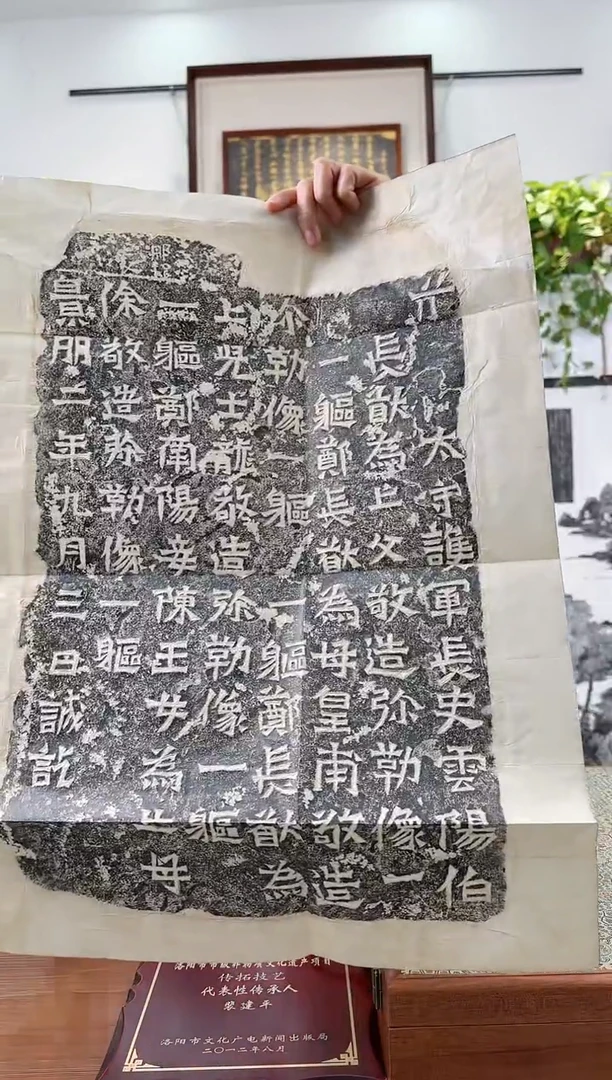 太守護軍長史雲陽伯
長猷為亡父敬造弥勒像一
一軀鄭長猷為母皇甫敬造
弥勒像一軀一軀鄭長猷為
亡児士龍敬造弥勒像一軀
一軀鄭南陽妾陳玉女為亡母
徐敬造弥勒像一軀
景明二年九月三日誡訖
洛阳市市级非物质文化遗产项目
传拓技艺
代表性传承人
裴建平
洛阳市文化广电新闻出版局
二〇一二年八月